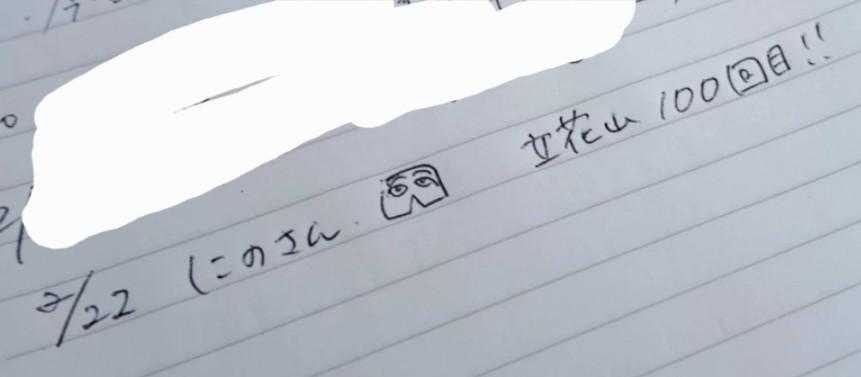 2/22 にのさん 立花山 100回目!!